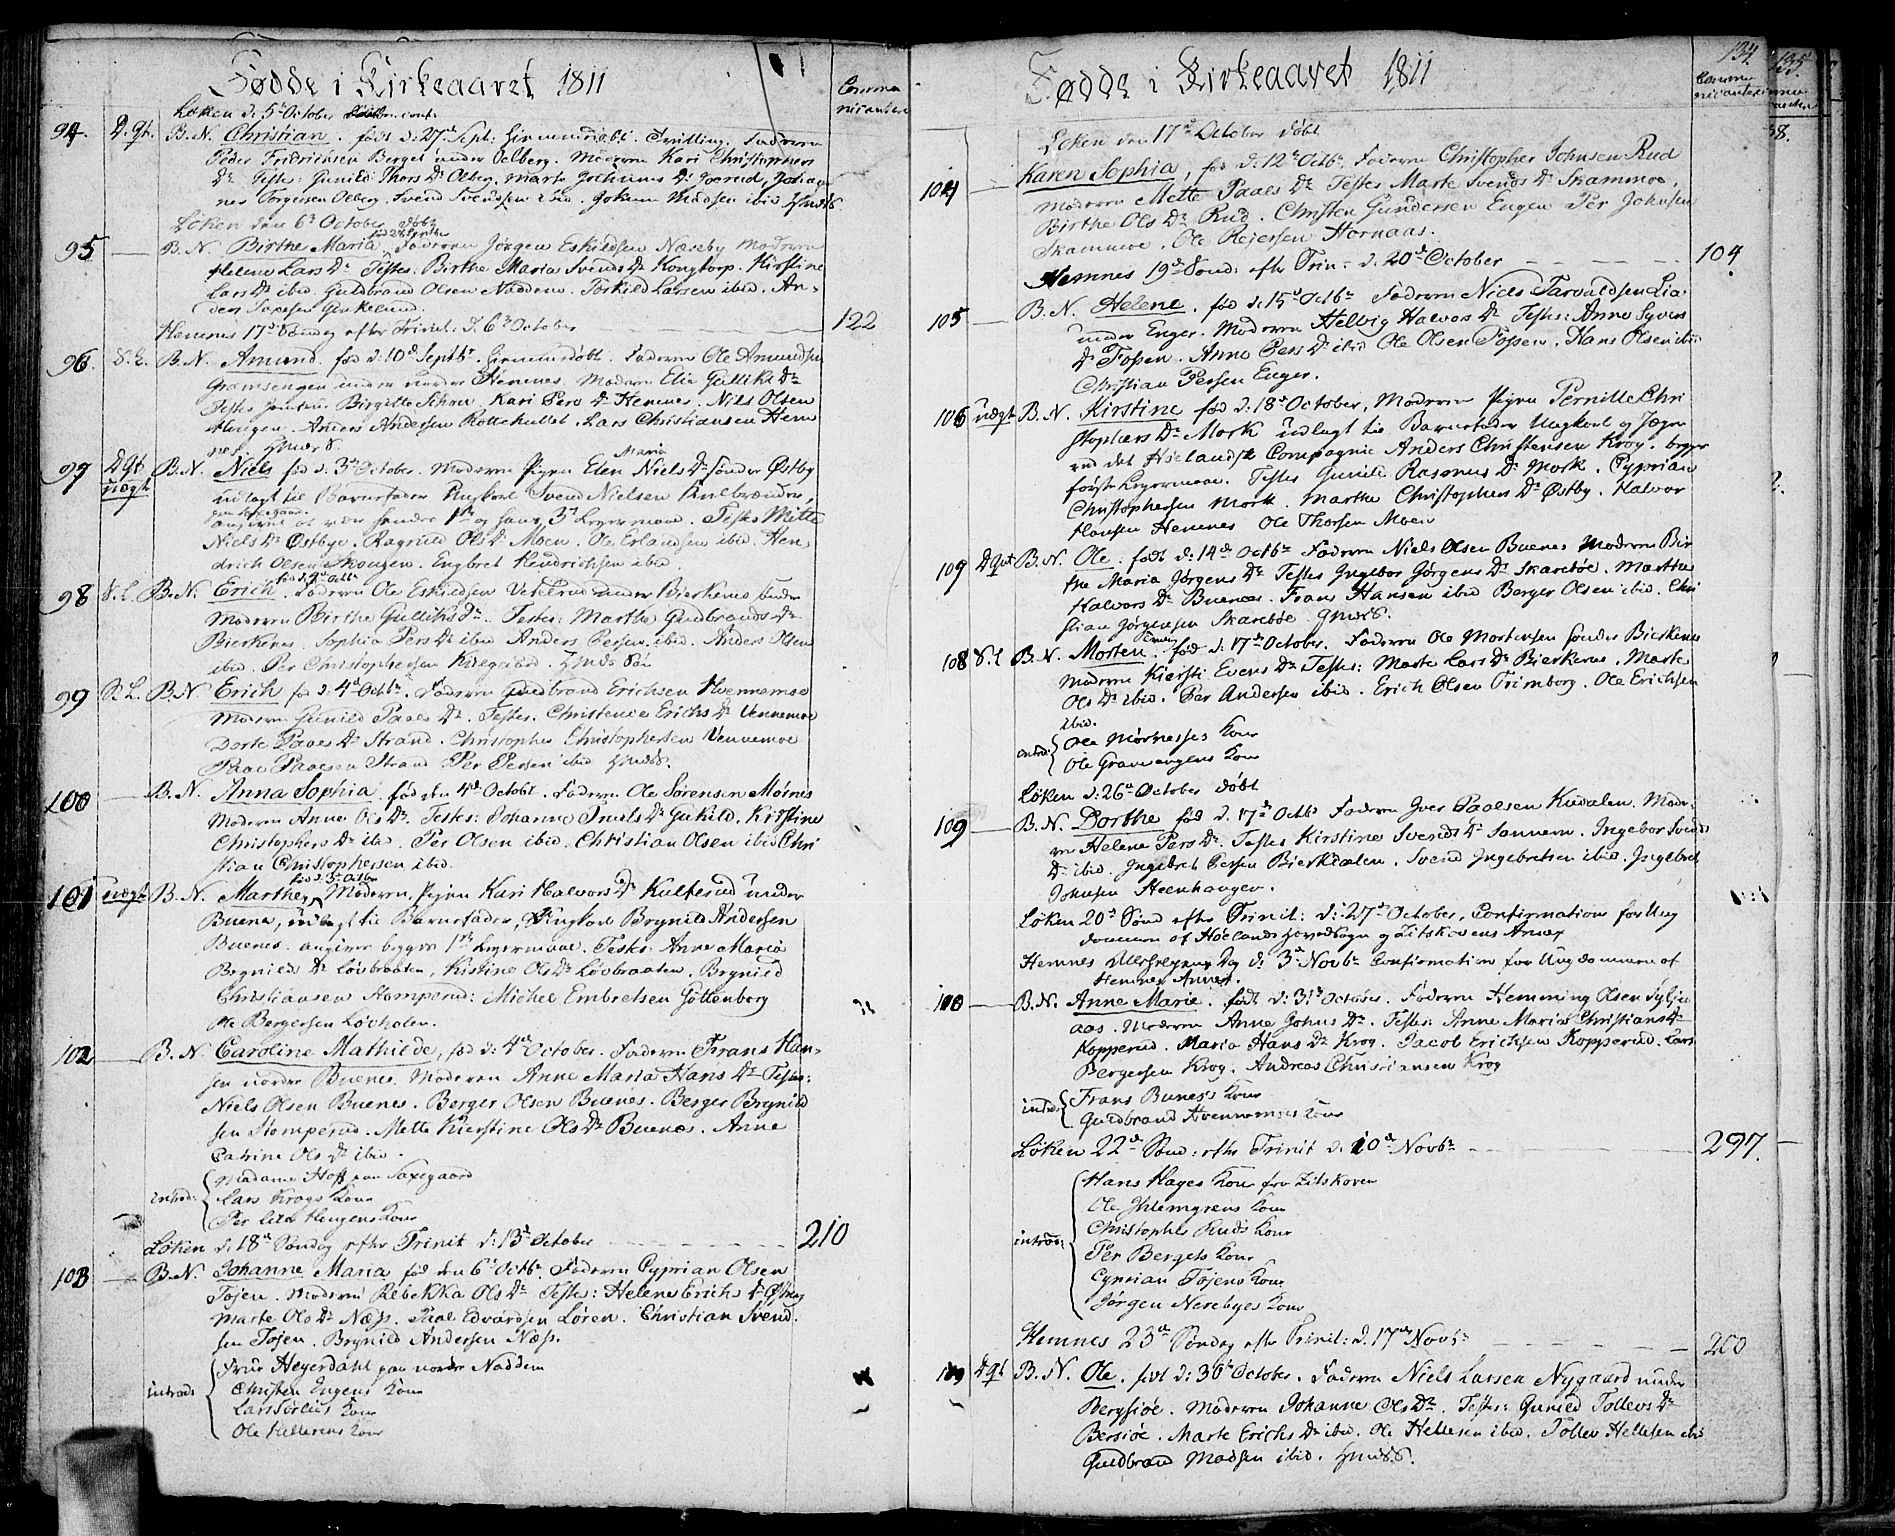 Fødde i Kirkeaaret 1811
Commu
nicantere
Løken d: 5t October
94. D.gt. B.N. Christian. født d: 27d Sept: hiemmedøbt. Tvilling. Faderen
Peder Fridrichsen Berget under Oelberg. Moderen Kari Christophers
Dr Testes: Gunild Thors Dr Olberg, Marte Jochums Dr ibid, Johan
nes Torgersen Olberg. Svend Svendsen ibid. Johan Madsen ibid
Løken den 6t October døbt
95 — B.N. Birthe Maria, Faderen Jørgen Eskildsen Næreby Moderen
Helene Lars Dr Testes: Birthe Maria Svends Dr Kongtorp. Kirstine
Lars Dr ibid. Guldbrand Olsen Nadden. Torkild Larsen ibid. An-
ders
Hemnes 17d Søndag efter Trinit: d. 6t October — 122
96. S.L. B.N. Amund. fød d: 10d Septbr. hiemmedøbt. Faderen Ole Amundsen
Gramsengen under nordre Hemnes. Moderen Elie Gulliks Dr
Testes Birgitte Schou. Kari Pers Dr Hemnes. Niels Olsen
Haugen. Anders Andersen Kottehullet. Lars Christiansen Hem
nes.
97 Dgt uægt B.N. Niels fød d: 3d October. Moderen Pigen Elen Maria Niels Dr søndr Østby
udlagt til Barnefader Ungkarl Svend Nielsen
angivet at være hendes 1te og hans 3d Leyermaal. Testes Mette
Niels Dr Østbye. Ragnild Ols Dr Moen. Ole Erlandsen ibid. Hen-
drich Olsen Skougen. Engbret Hendrichsen ibid.
98 S.L. B.N. Erich. Faderen Ole Eskildsen under Bierkenes
Moderen Birthe Gulliks Dr. Testes: Marthe Guldbrands Dr
Bierkenes. Sophia Pers Dr ibid Anders Persen ibid. Anders Olsen
ibid. Per Christophersen
99 S.L. B.N. Erich fø d: 4d Octbr. Faderen Guldbrand Erichsen Hvennemoe
Moderen Gunild Paals Dr. Testes. Christence Erichs Dr Vennemoe
Dorte Paals Dr Strand. Christopher Christophersen Vennemoe
Paal Paalsen Strand Per Persen ibid
100 — B.N. Anna Sophia fød den 4d Octobr. Faderen Ole Sørensen Moines
Moderen Anne Ols Dr. Testes: Johanne Truels Dr Gukild. Kirstine
Christophers Dr ibid. Per Olsen ibid. Christian Olsen ibid Chri
stian Christophersen ibid.
101 uægt B.N. Marthe, Moderen Pigen Kari Halvors Dr Kulterud under
Buene, udlagt til Barnefader, Ungkarl Brynild Andersen
Buenes. angiver begges 1te Leyermaal. Testes: Anne Maria
Brynilds Dr Løvbraaten, Kistine Ols Dr Løvbraaten. Brynild
Christiansen Stomperud: Michel Embretsen Gottenborg
Ole Bergersen Løvholen.
102 — B.N. Caroline Mathilde, fød d: 4d October. Faderen Frans Han-
sen nordre Buenes. Moderen Anne Maria Hans Dr Testes:
Niels Olsen Buenes. Berger Olsen Buenes. Berger Brynild
sen Stomperud. Mette Kierstine Ols Dr Buenæs. Anne
Catrine Ols Dr ibid.
introd: Madame Hoff paa Saxegaard
Lars Krogs Kone
Per Haugens Kone
Løken d: 18d Søndag efter Trinit d: 13d October — 210
103 — B.N. Johanne Maria fød den 6t Octbr. Faderen Cyprian Olsen
Tojen. Moderen Rebekka Ols Dr Testes: Helene Erichs Dr
Marte Ols Dr Næss. Paal Edvardsen Løren. Christian Svend
sen Tojen. Brynild Andersen Næss.
introd: Frue Heyerdahl paa nordre Naddem
Christen Engens Kone
Lars Sørlies Kone
Ole Hellerens Kone
Fødde i Kirkeaaret 1811
134
Commu
nicantere
Løken den 17d October døbt
104 — Karen Sophia, fød d: 12t Octbr. Faderen Christopher Johnsen Rud
Moderen Mette Paals Dr Testes Marte Svends Dr Skammoe.
Birthe Ols Dr Rud. Christen Gundersen Engen Per Johnsen
Skammoe. Ole Reiersen Hornaas.
Hemnes 19d Sønd: efter Trin— d: 20d October — 104
105 — B.N. Helene. fød d: 15d Octbr Faderen Niels Tarvaldsen Lia
under Enger. Moderen Helvig Halvors Dr Testes: Anne Syvers
Dr Fossen. Anne Pers Dr ibid Ole Olsen Fossen. Hans Olsen ibid
Christian Persen Enger.
106 uægt B.N. Kirstine fød d. 18d October, Moderen Pigen Pernille Chri
stophers Dr Mork udlagt til Barnefader Ungkarl og Jæger
ved det Hølandske Compagnie Anders Christensen Krog. begges
første Leyermaal. Testes Gunild Rasmus Dr Mork. Cyprian
Christophersen Mork. Marthe Christophers Dr Østby. Halvor
Hansen Hemnes Ole Thorsen Moen
107 Dgt B.N. Ole. født d: 14d Octbr Faderen Niels Olsen Buenes Moderen Bir
the Maria Jørgens Dr Testes Ingebor Jørgens Dr Skarebøe. Marthe
Halvors Dr Buenæs. Frans Hansen ibid Berger Olsen ibid. Chri
stian Jørgensen Skarebøe
108 S.L B.N. Morten. fød d: 17d October. Faderen Ole Mortensen søndre Bierkenes
Moderen Kiersti Evens Dr Testes: Marte Lars Dr Bierkenes. Marte
Ols Dr ibid. Per Andersen ibid. Erich Olsen Trimborg. Ole Erichsen
ibid.
introd: Ole Mørnesses Kone
Ole Gramsengens Kone
Løken d: 26d October døbt
109 — B.N. Dorthe fød d. 17d Octbr Faderen Iver Paalsen Kudalen. Mode-
ren Helene Pers Dr. Testes Kirstine Svends Dr Sannern. Ingebor Svends
Dr ibid. Ingebret Persen Bierkdalen. Svend Ingebretsen ibid. Ingebret
Johnsen Steenhaugen.
Løken 20d Sønd efter Trinit: d: 27d October. Confirmation for Ung
dommen af Hølands Hovedsogn og Sitskovens Annex
Hemnes Allehelgens Dag d: 3d Novbr Confirmation for Ungdommen af
Hemnes Annex.
100 — B.N. Anne Marie. født d: 31t October. Faderen Hemming Olsen Sylju
aas. Moderen Anne Johns Dr. Testes: Anne Maria Christians Dr
Kopperud. Maria Hans Dr Krog. Jacob Erichsen Kopperud. Lars
Bergersen Krog. Andreas Christiansen Krog
introd: Frans Bunes's Kone
Guldbrand Hvennemoes Kone
Løken 22d Sønd: efter Trinit d: 10d Novbr — 297.
introd: Hans Hages Kone fra Sitskoven
Ole Ihlemgrens Kone
Christopher Ruds Kone
Per Bergets Kone
Cyprian Tojens Kone
Jørgen Nerebyes Kone
Hemnes 23d Søndag efter Trinit: d. 17de Novbr — 200
109 Dgt B.N. Ole. født d: 30t October. Faderen Niels Larsen Nygaard under
Bergsiøe. Moderen Johanne Ols Dr. Testes: Gunild Tollevs Dr
Bersiøe. Marte Erichs Dr ibid. Ole Hellesen ibid. Tollev Hellesen ibid
Guldbrand Madsen ibid.